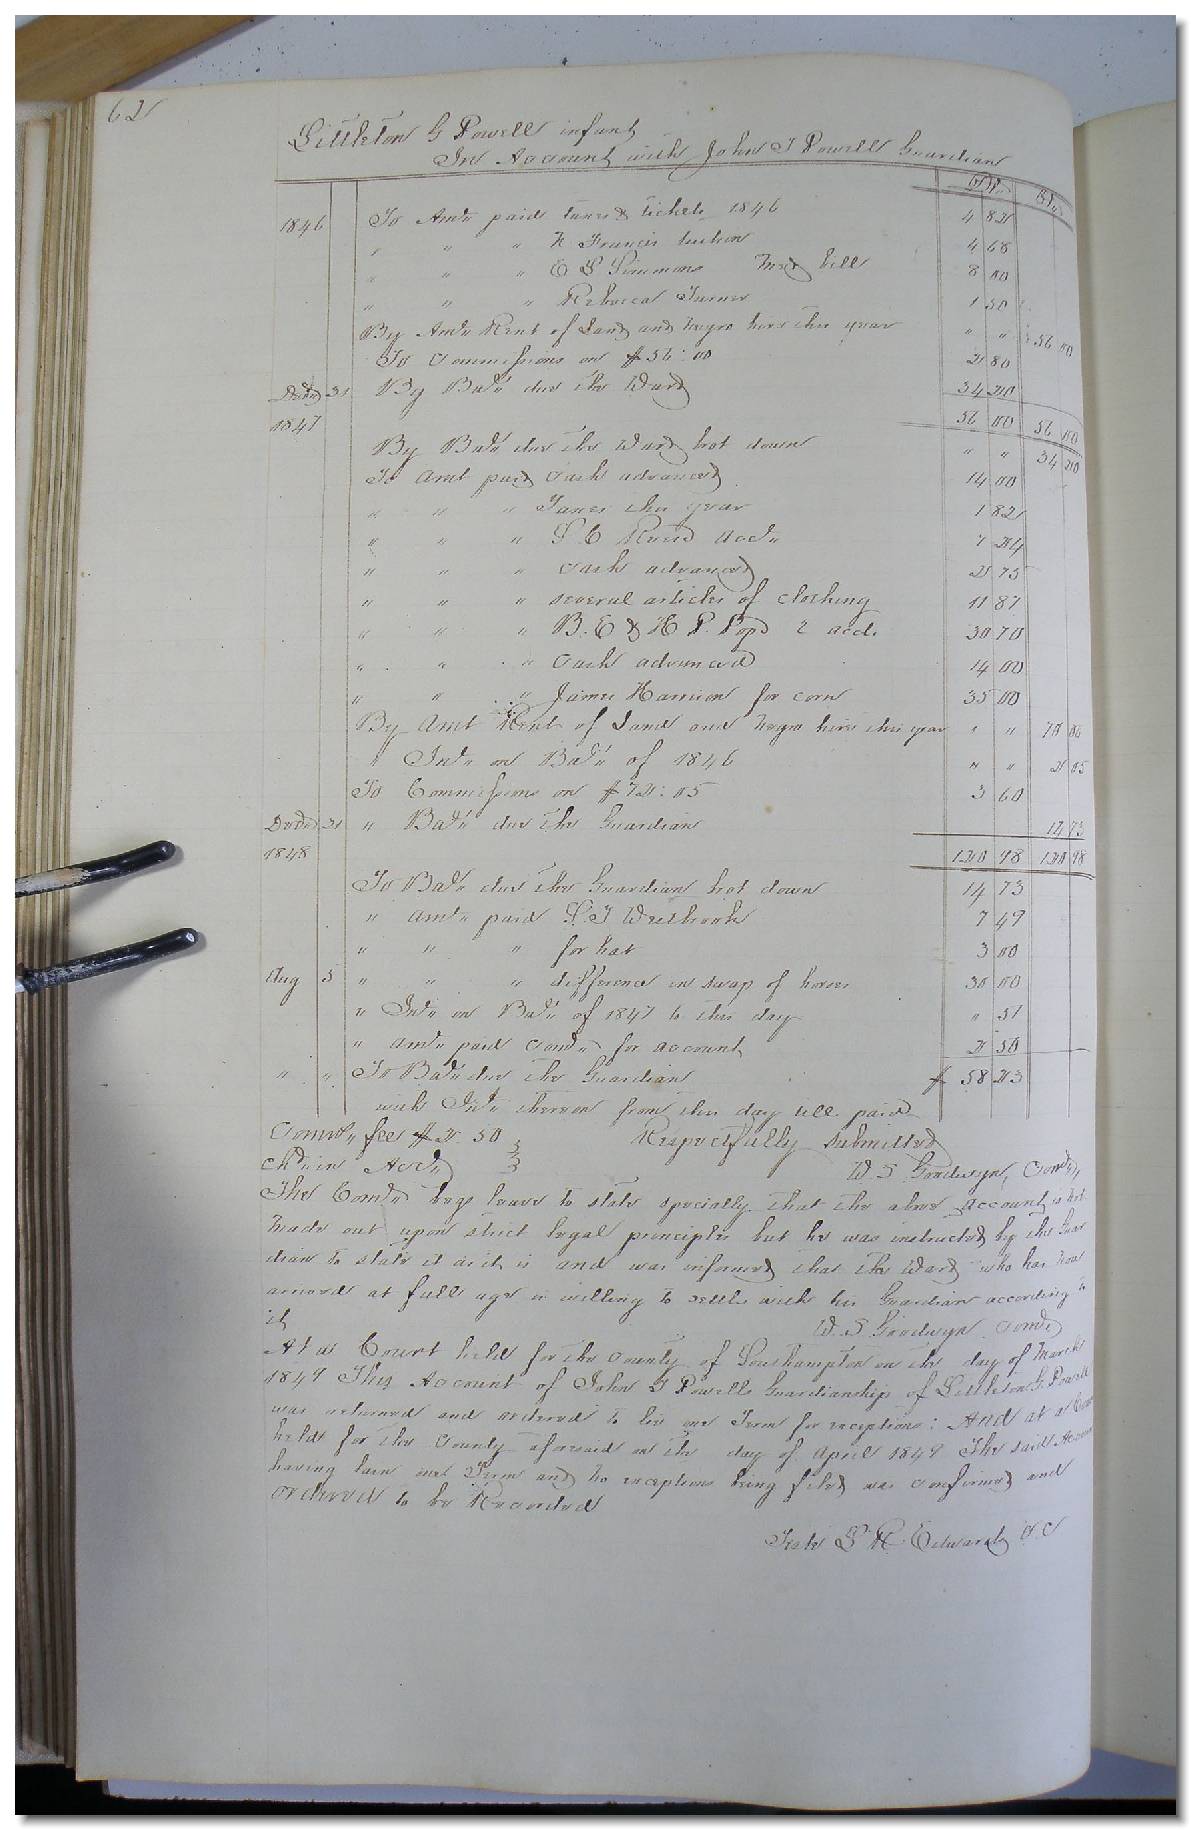 62
Littleton G Powell infant
In Account with John T Powell Guardian
Dr Cr
1846 To Amt paid taxes & tickets 1846 4 82
" " " N Francis tuition 4 68
" " " E S Simmons Med bill 8 00
" " " Rebecca Turner 1 50
By Amt Rent of Land and Negro hire this year " " 56 00
To Commissions on $56:00 2 80
Decr 31 By Balc due the Ward 34 20
1847 56 00 56 00
By Balc due the Ward bot down " " 34 20
To Amt paid Cash advanced 14 00
" " " Taxes this year 1 82
" " " Acct 7 24
" " " Cash advanced 2 75
" " " several articles of clothing 11 87
" " " B. E & H P. 2 accts 30 70
" " " Cash advanced 14 00
" " " James Harrison for corn 35 00
By Amt Rent of Land and Negro hire this year " " 70 00
" Intt on Balc of 1846 " " 2 05
To Commissions on $72:05 3 60
Decr 31 " Balc due the Guardian 14 73
1848 120 98 120 98
To Balc due the Guardian bot down 14 73
" Amt paid S. T 7 49
" " " for hat 3 00
Aug 5 " " " difference in swap of horses 30 00
" Intt on Balc of 1847 to this day " 51
" Amt paid Comr for account 2 50
" " To Balc due the Guardian $ 58 23
with Intt thereon from this day till paid
Comrs fee $2.50 Respectfully submitted
Chd in Acct W. S Goodwyn, Comr
The Comr begs leave to state specially that the above account is not
made out upon strict legal principles but he was instructed by the Guar
dian to state it as it is and was informed that the Ward who has now
arrived at full age is willing to settle with his Guardian according to
it W. S Goodwyn Comr
At a Court held for the County of Southampton on the day of March
1849 This Account of John T Powells Guardianship of Littleton G. Powell
was returned and ordered to lie one Term for exceptions: And at a Court
held for the County aforesaid on the day of April 1849 The said Account
having lain one Term and no exceptions being filed was confirmed and
ordered to be Recorded
Teste L R Edwards C C